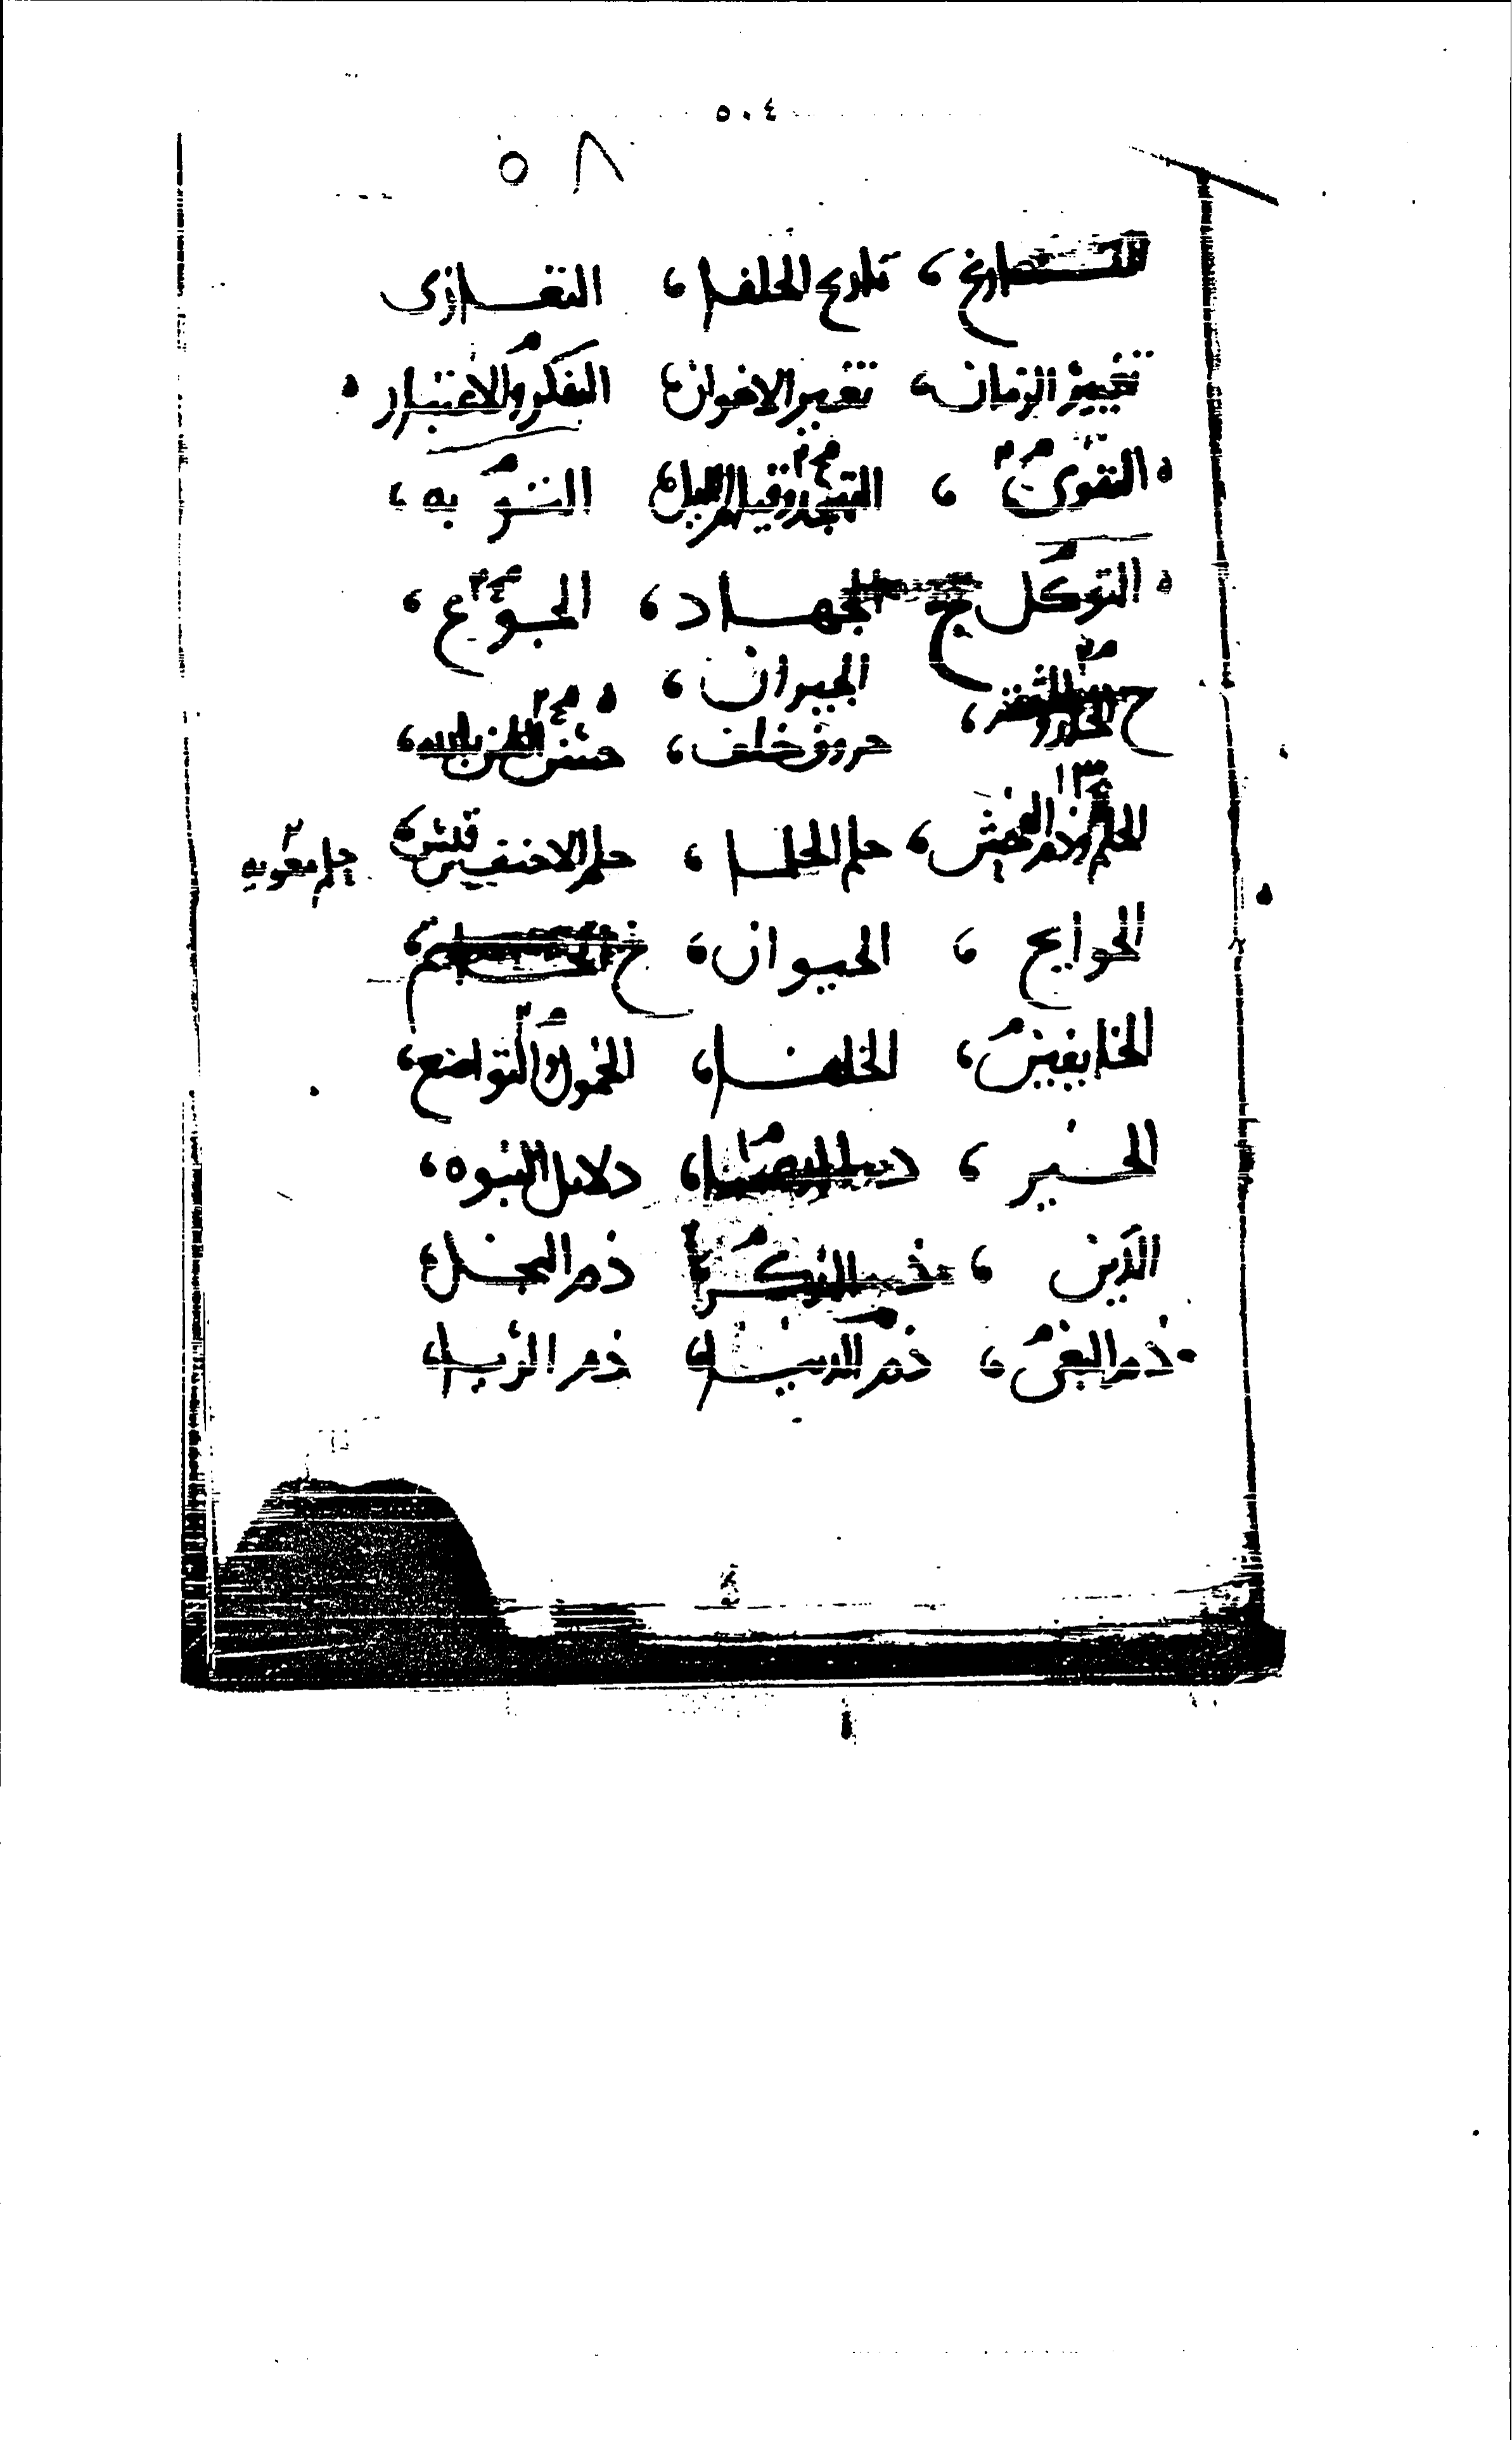 ٥٠٤
٥٨
التاريخ ، تاريخ الخلفا ، التعازى
تغيير الزمان ، تغير الاخوان ، التفكر والاعتبار
التقوى ، التهجد وقيام الليل ، التوبه ،
التوكل ج الجهاد ، الجوع ،
الجيران ،
ح ، حروف خلف ، حسن الظن بالله ،
الحلم ، حلم الحلما ، حلم الاحنف بن قيس ، حلم معويه
الحوايج ، الحيوان ، خ
الخايفين ، الخلفا ، الخمول والتواضع ،
الخبر ، دلايل النبوه ،
الدين ، ذم البخل ،
ذم البغى ، ذم الدنيا ، ذم الريا ،